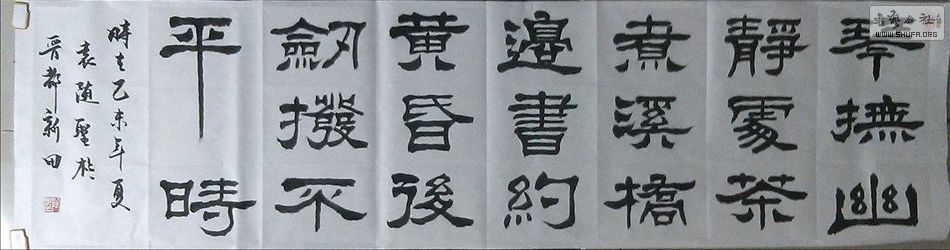 琴撫幽
靜處茶
煮溪橋
邊書約
黄昏後
劒撥不
平時
時在乙未年夏
袁随聖於
晋都新田
書藝公社
WWW.SHUFA.ORG